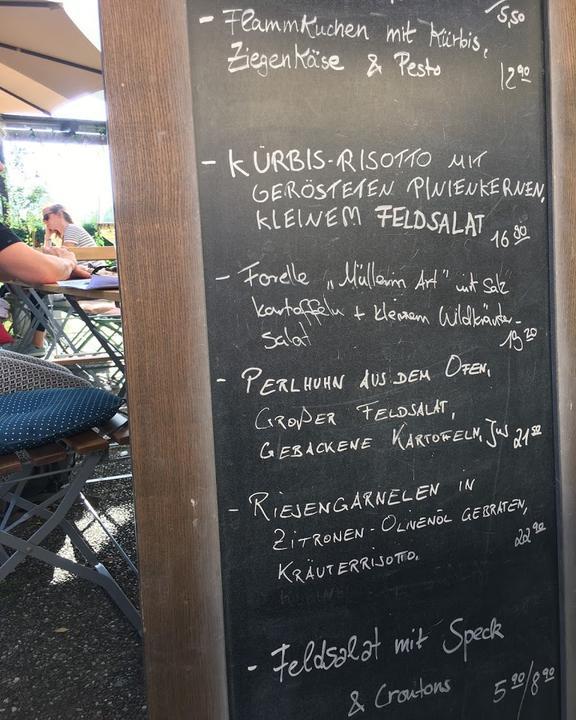 5,50
- Flammkuchen mit Kürbis,
Ziegenkäse & Pesto
12 90
- KÜRBIS-RISOTTO MIT
GERÖSTETEN PINIENKERNEN,
KLEINEM FELDSALAT
16 90
- Forelle „Müllerin Art" mit Salz
kartoffeln + kleinem Wildkräuter-
Salat 19 20
- PERLHUHN AUS DEM OFEN,
GROßER FELDSALAT,
GEBACKENE KARTOFFELN, JUS 21 50
- RIESENGARNELEN IN
ZITRONEN-OLIVENÖL GEBRATEN,
KRÄUTERRISOTTO. 22 90
- Feldsalat mit Speck
& Croutons 5 90/8 90